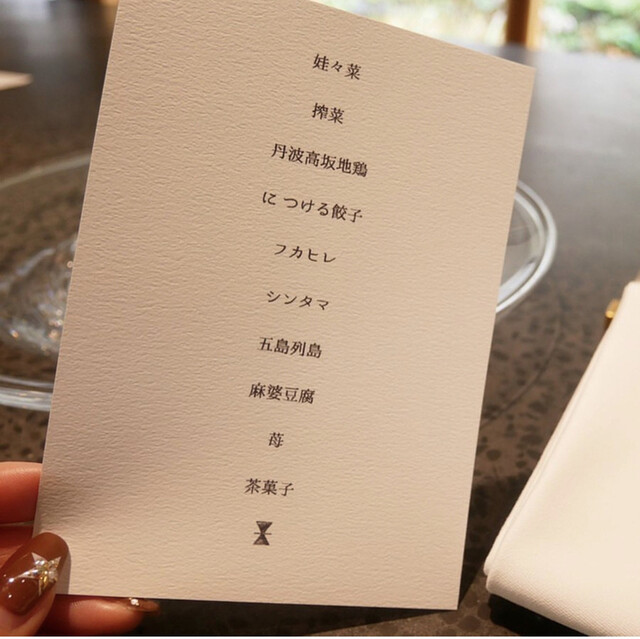 娃々菜
搾菜
丹波高坂地鶏
に つける餃子
フカヒレ
シンタマ
五島列島
麻婆豆腐
苺
茶菓子